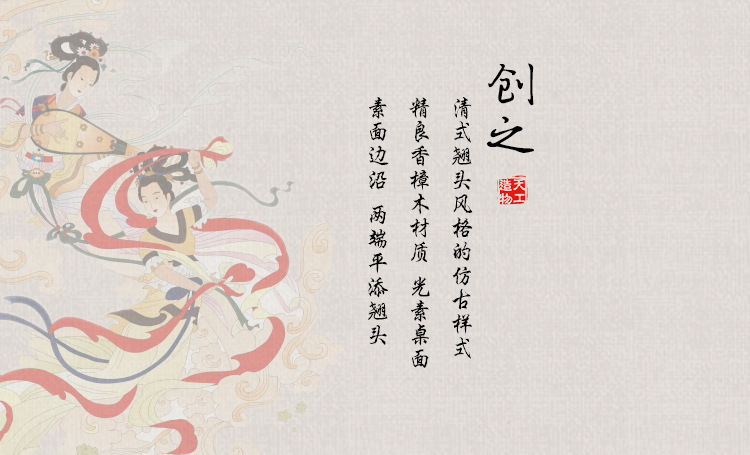 创之
天工
造物
清式翘头风格的仿古样式
精良香樟木材质 光素桌面
素面边沿 两端平添翘头